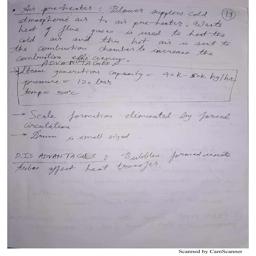 • Air pre-heater : Blower supplies cold (19)
atmospheric air to air pre-heater. Waste
heat of flue gases is used to heat the
cold air and this hot air is sent to
the combustion chamber to increase the
combustion efficiency.
ADVANTAGES
Steam generation capacity = kg/hr.
pressure = bar
temp = 500°C
→ Scale formation eliminated by forced
circulation
→ Drum is small sized
DISADVANTAGES : Bubbles formed inside
tubes effect heat transfer.
Scanned by CamScanner